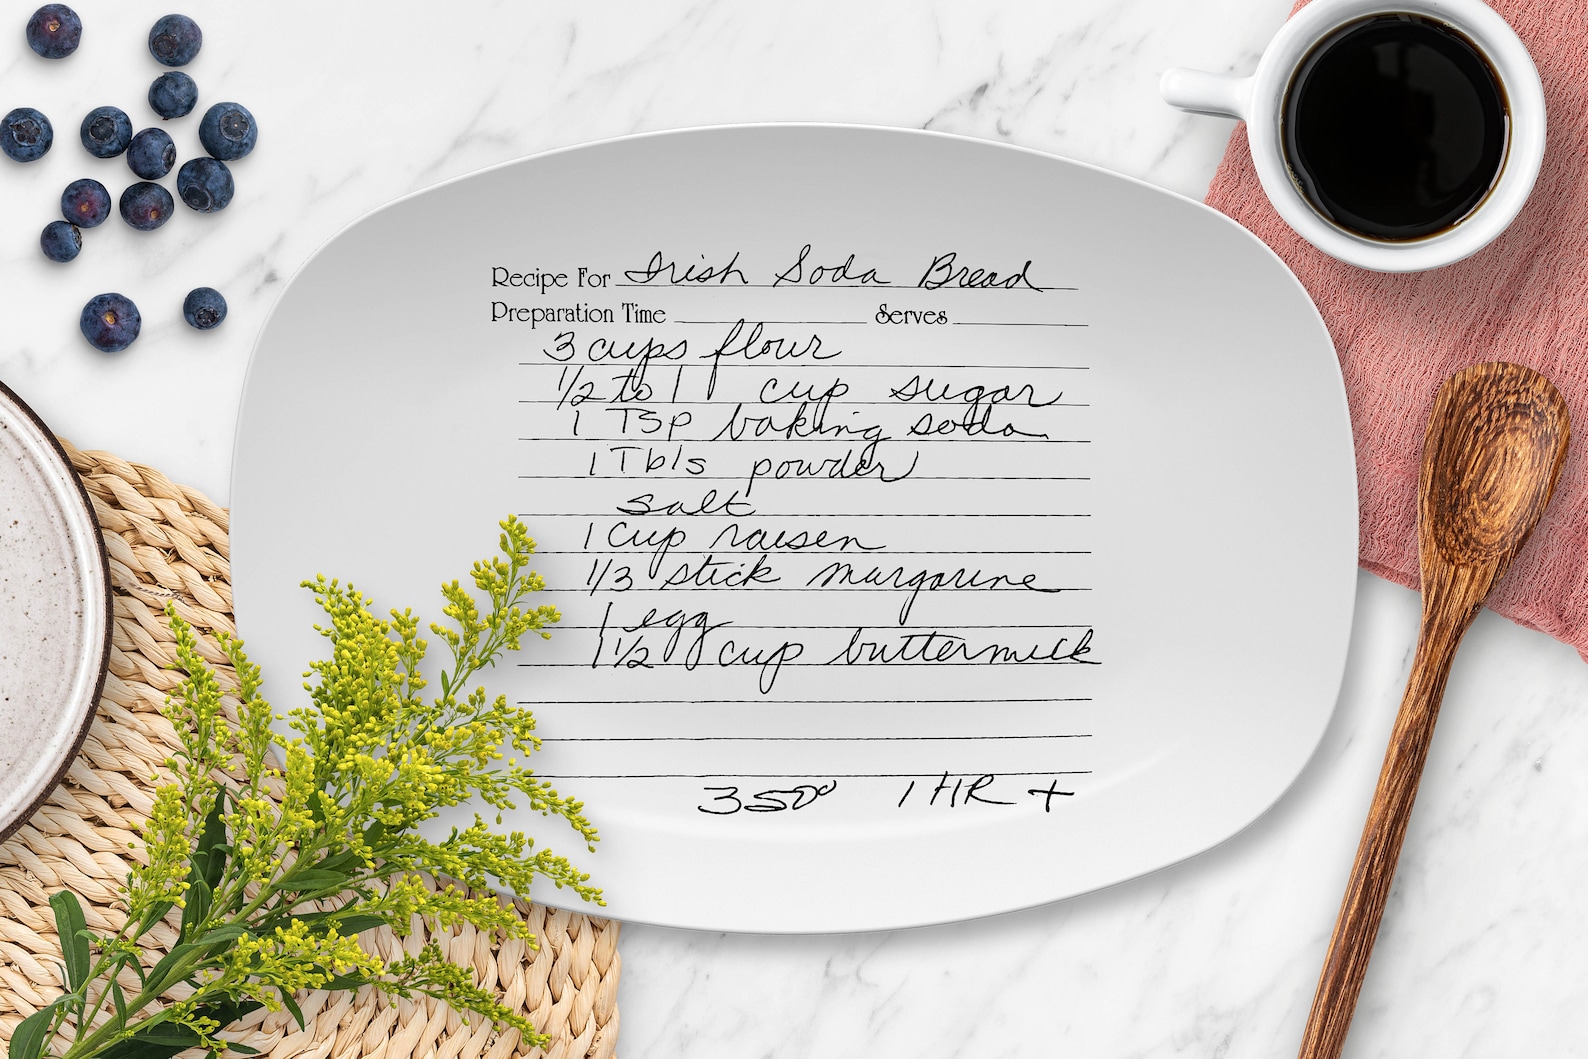 Recipe For Irish Soda Bread
Preparation Time Serves
3 cups flour
1/2 to 1 cup sugar
1 Tsp baking soda
1 Tbls powder
salt
1 cup raisen
1/3 stick margarine
1 egg
1 1/2 cup buttermilk
350° 1 HR +